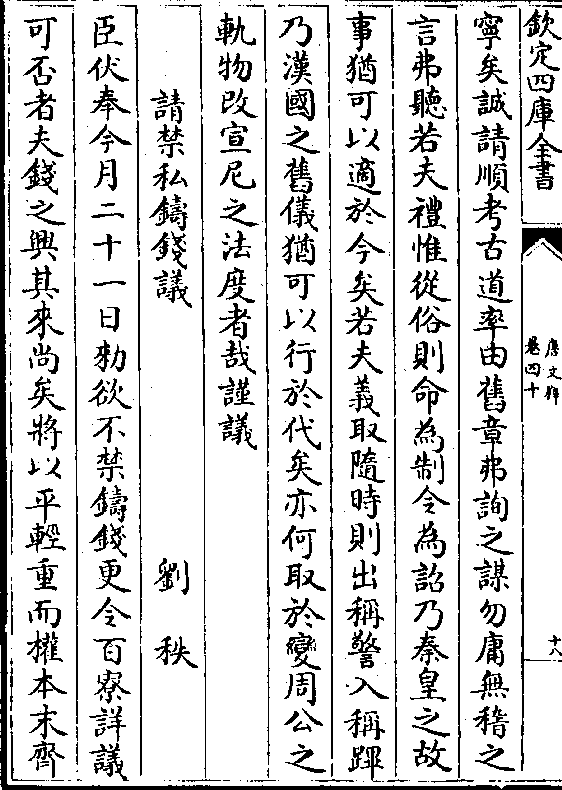 欽定四庫全書
唐文粹
卷四十
十八
寧矣誠請順考古道率由舊章弗詢之謀勿庸無稽之
言弗聽若夫禮惟從俗則命為制令為詔乃秦皇之故
事猶可以適於今矣若夫義取隨時則出稱警入稱蹕
乃漢國之舊儀猶可以行於代矣亦何取於變周公之
軌物改宣尼之法度者哉謹議
請禁私鑄錢議 劉秩
臣伏奉今月二十一日勑欲不禁鑄錢更令百寮詳議
可否者夫錢之興其來尚矣將以平輕重而權本末齊